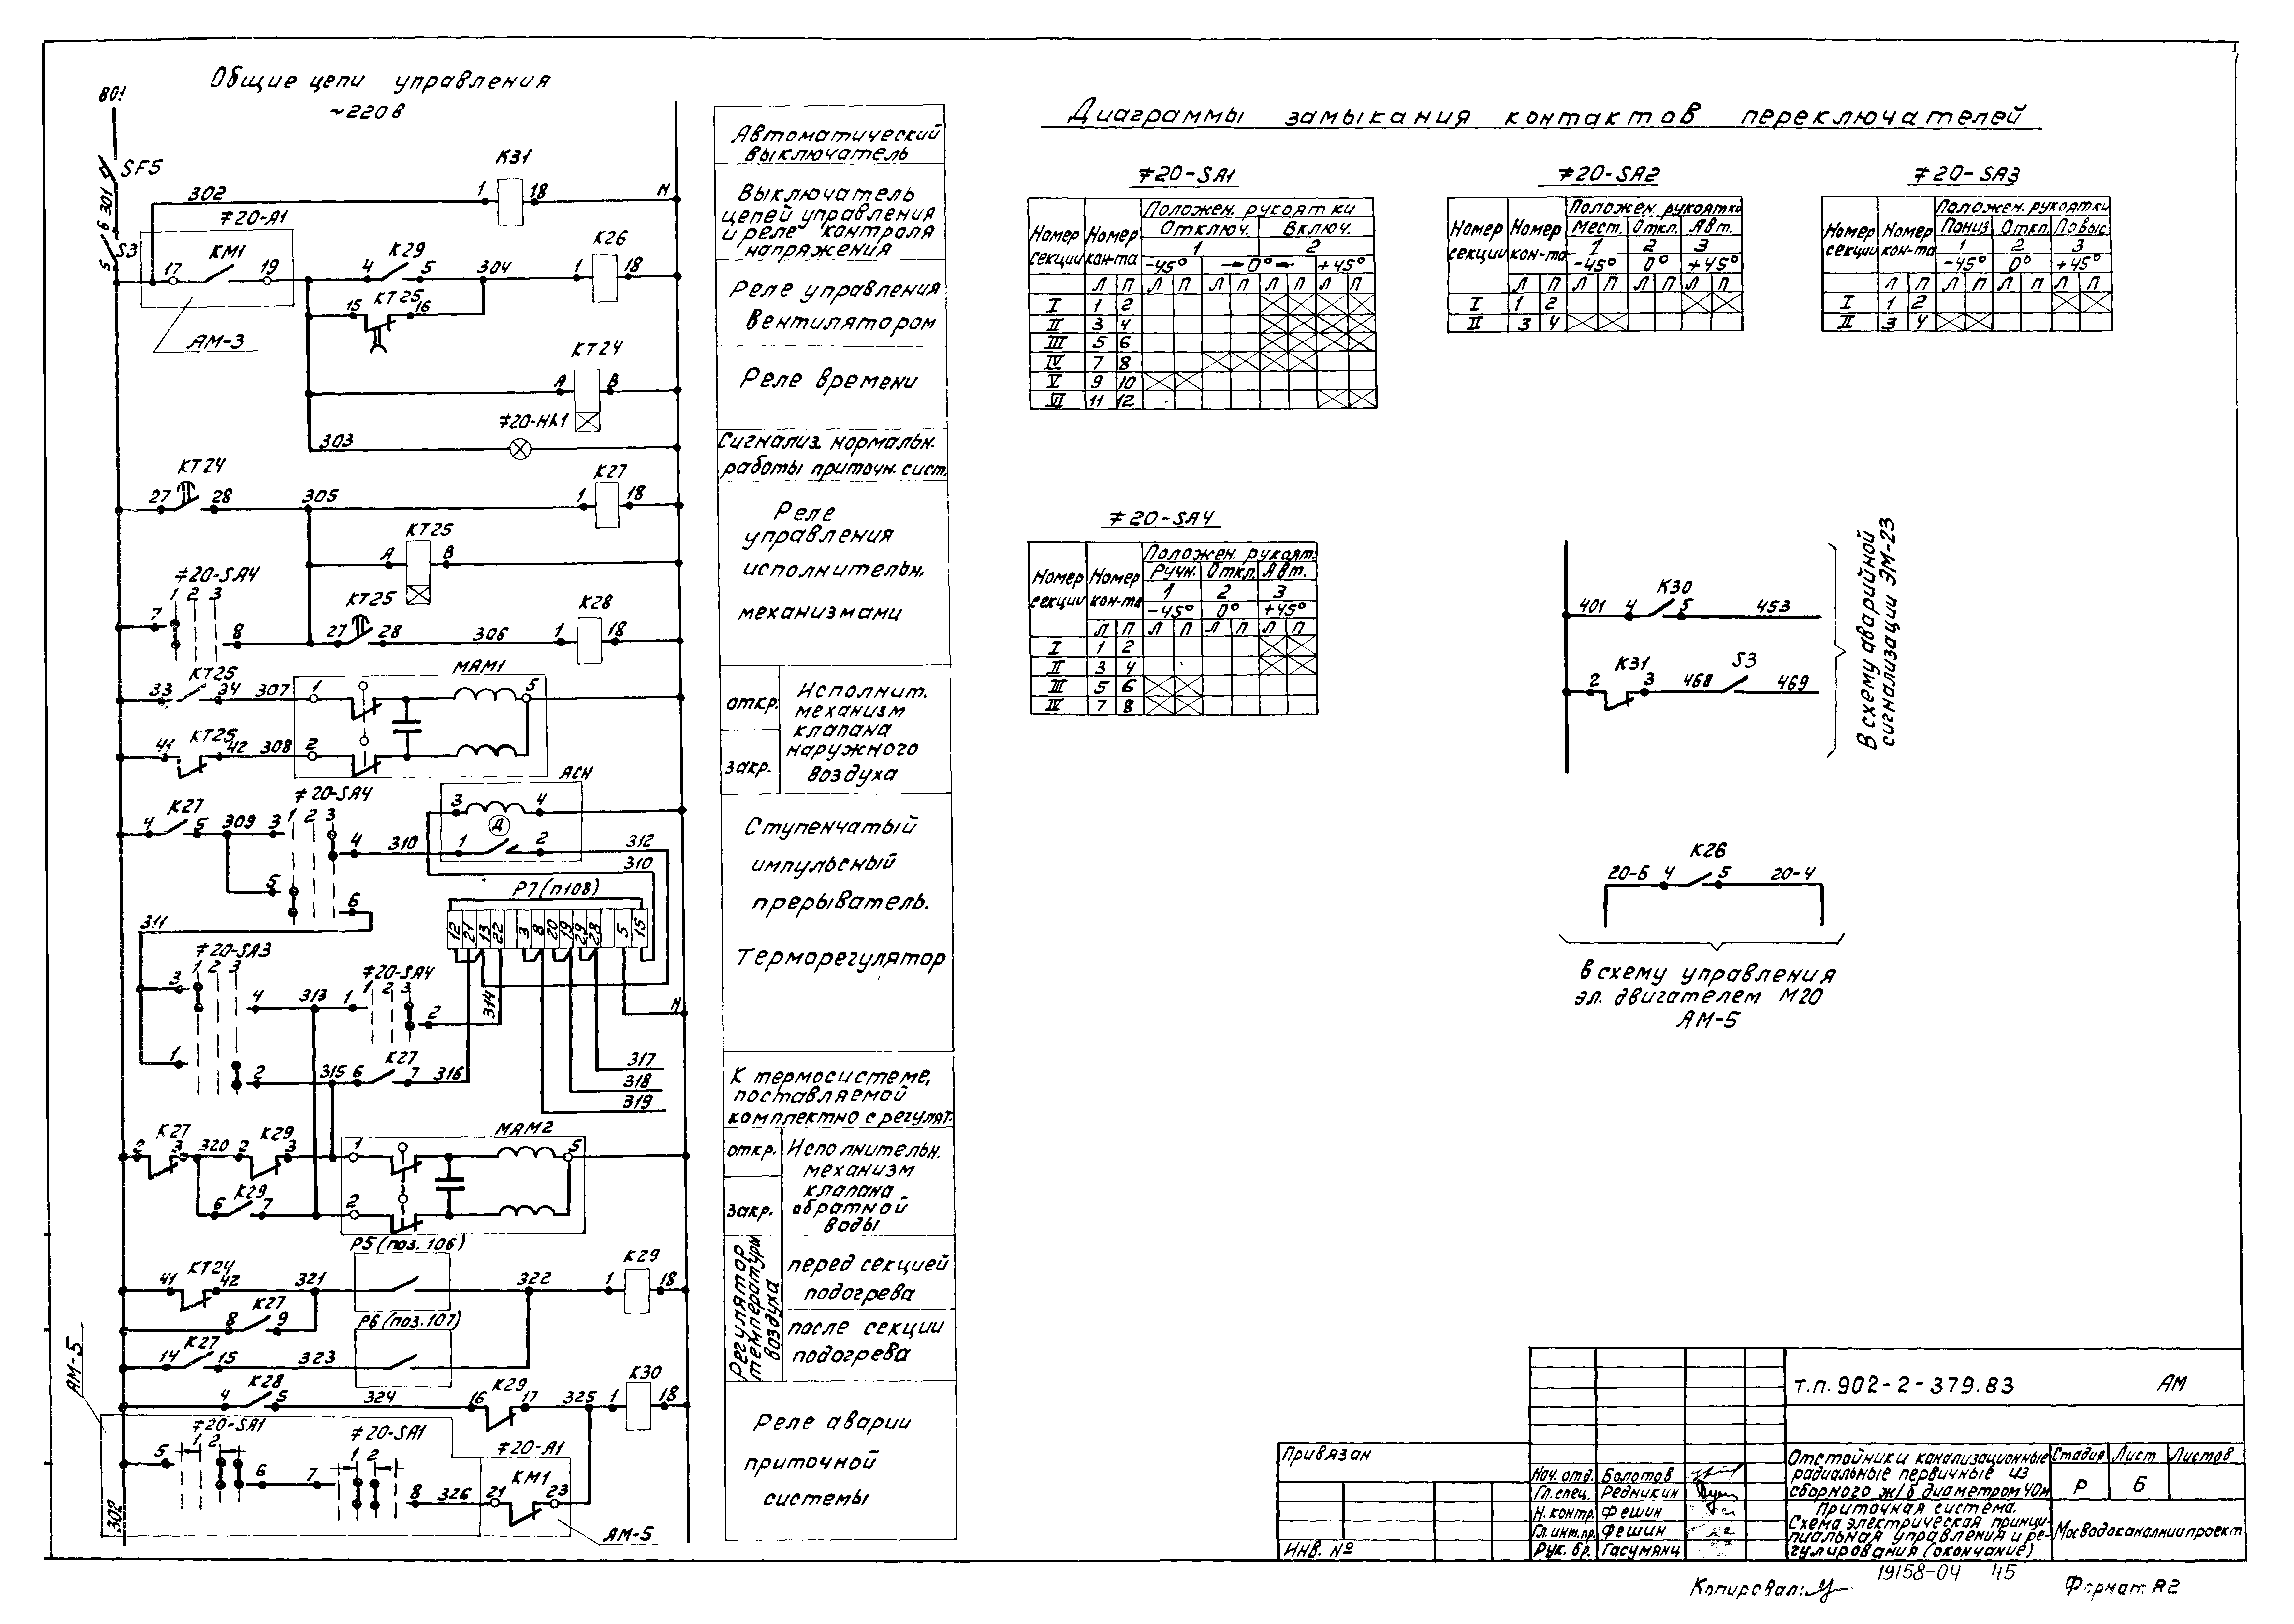 Общие цепи управления
~220 в
801
SF5
301
6
S3
5
302
1
К31
18
N
≠20-А1
17
КМ1
19
4
К29
5
304
1
К26
18
15
КТ25
16
АМ-3
КТ24
А
В
≠20-HL1
303
КТ24
27
28
305
1
К27
18
КТ25
А
В
≠20-SA4
1 2 3
7
8
КТ25
27
28
306
1
К28
18
КТ25
33
34
307
МАМ1
1
5
КТ25
41
42
308
2
АСН
3
4
Д
1
2
К27
4
5
309
≠20-SA4
1 2 3
3
4
310
312
310
5
6
311
Р7 (п108)
12 21 13 22 3 8 20 19 29 28 5 15
≠20-SA3
1 2 3
3
4
313
≠20-SA4
1 2 3
1
2
314
N
1
2
315
6
К27
7
316
317
318
319
К27
2
3
320
К29
2
3
МАМ2
1
5
К29
6
7
2
Р5 (поз. 106)
КТ24
41
42
321
322
1
К29
18
К27
8
9
Р6 (поз.107)
К27
14
15
323
К28
4
5
324
К29
16
17
325
1
К30
18
АМ-5
≠20-SA1
1 2
5
6
≠20-SA1
1 2
7
8
326
≠20-А1
КМ1
21
23
302
АМ-5
Автоматический
выключатель
Выключатель
цепей управления
и реле контроля
напряжения
Реле управления
вентилятором
Реле времени
Сигнализ. нормальн.
работы приточн. сист.
Реле
управления
исполнительн.
механизмами
откр.
закр.
Исполнит.
механизм
клапана
наружного
воздуха
Ступенчатый
импульсный
прерыватель.
Терморегулятор
К термосистеме,
поставляемой
комплектно с регулят.
откр.
закр.
Исполнительн.
механизм
клапана
обратной
воды
Регулятор
температуры
воздуха
перед секцией
подогрева
после секции
подогрева
Реле аварии
приточной
системы
Диаграммы замыкания контактов переключателей
≠20-SA1
Номер секции
Номер кон-та
Положен. рукоятки
Отключ. Включ.
1 2
-45° →0°← +45°
Л П Л П Л П Л П Л П
I 1 2
II 3 4
III 5 6
IV 7 8
V 9 10
VI 11 12
≠20-SA2
Номер секции
Номер кон-та
Положен. рукоятки
Мест. Откл. Авт.
1 2 3
-45° 0° +45°
Л П Л П Л П Л П
I 1 2
II 3 4
≠20-SA3
Номер секции
Номер кон-та
Положен. рукоятки
Пониз. Откл. Повыс.
1 2 3
-45° 0° +45°
Л П Л П Л П Л П
I 1 2
II 3 4
≠20-SA4
Номер секции
Номер кон-та
Положен. рукоят.
Ручн. Откл. Авт.
1 2 3
-45° 0° +45°
Л П Л П Л П Л П
I 1 2
II 3 4
III 5 6
IV 7 8
401
4
К30
5
453
2
К31
3
468
S3
469
В схему аварийной
сигнализации ЭМ-23
20-6
4
К26
5
20-4
В схему управления
эл. двигателем М20
АМ-5
Привязан
Инв. №
Нач. отд. Болотов
Гл. спец. Редникин
Н. контр. Фешин
Гл. инж. пр. Фешин
Рук. бр. Гасумянц
т.п. 902-2-379.83 АМ
Отстойники канализационные
радиальные первичные из
сборного ж/б диаметром 40м
Стадия Лист Листов
Р 6
Приточная система.
Схема электрическая принци-
пиальная управления и ре-
гулирования (окончание)
Мосводоканалниипроект
19158-04 45
Копировал:
Формат А2